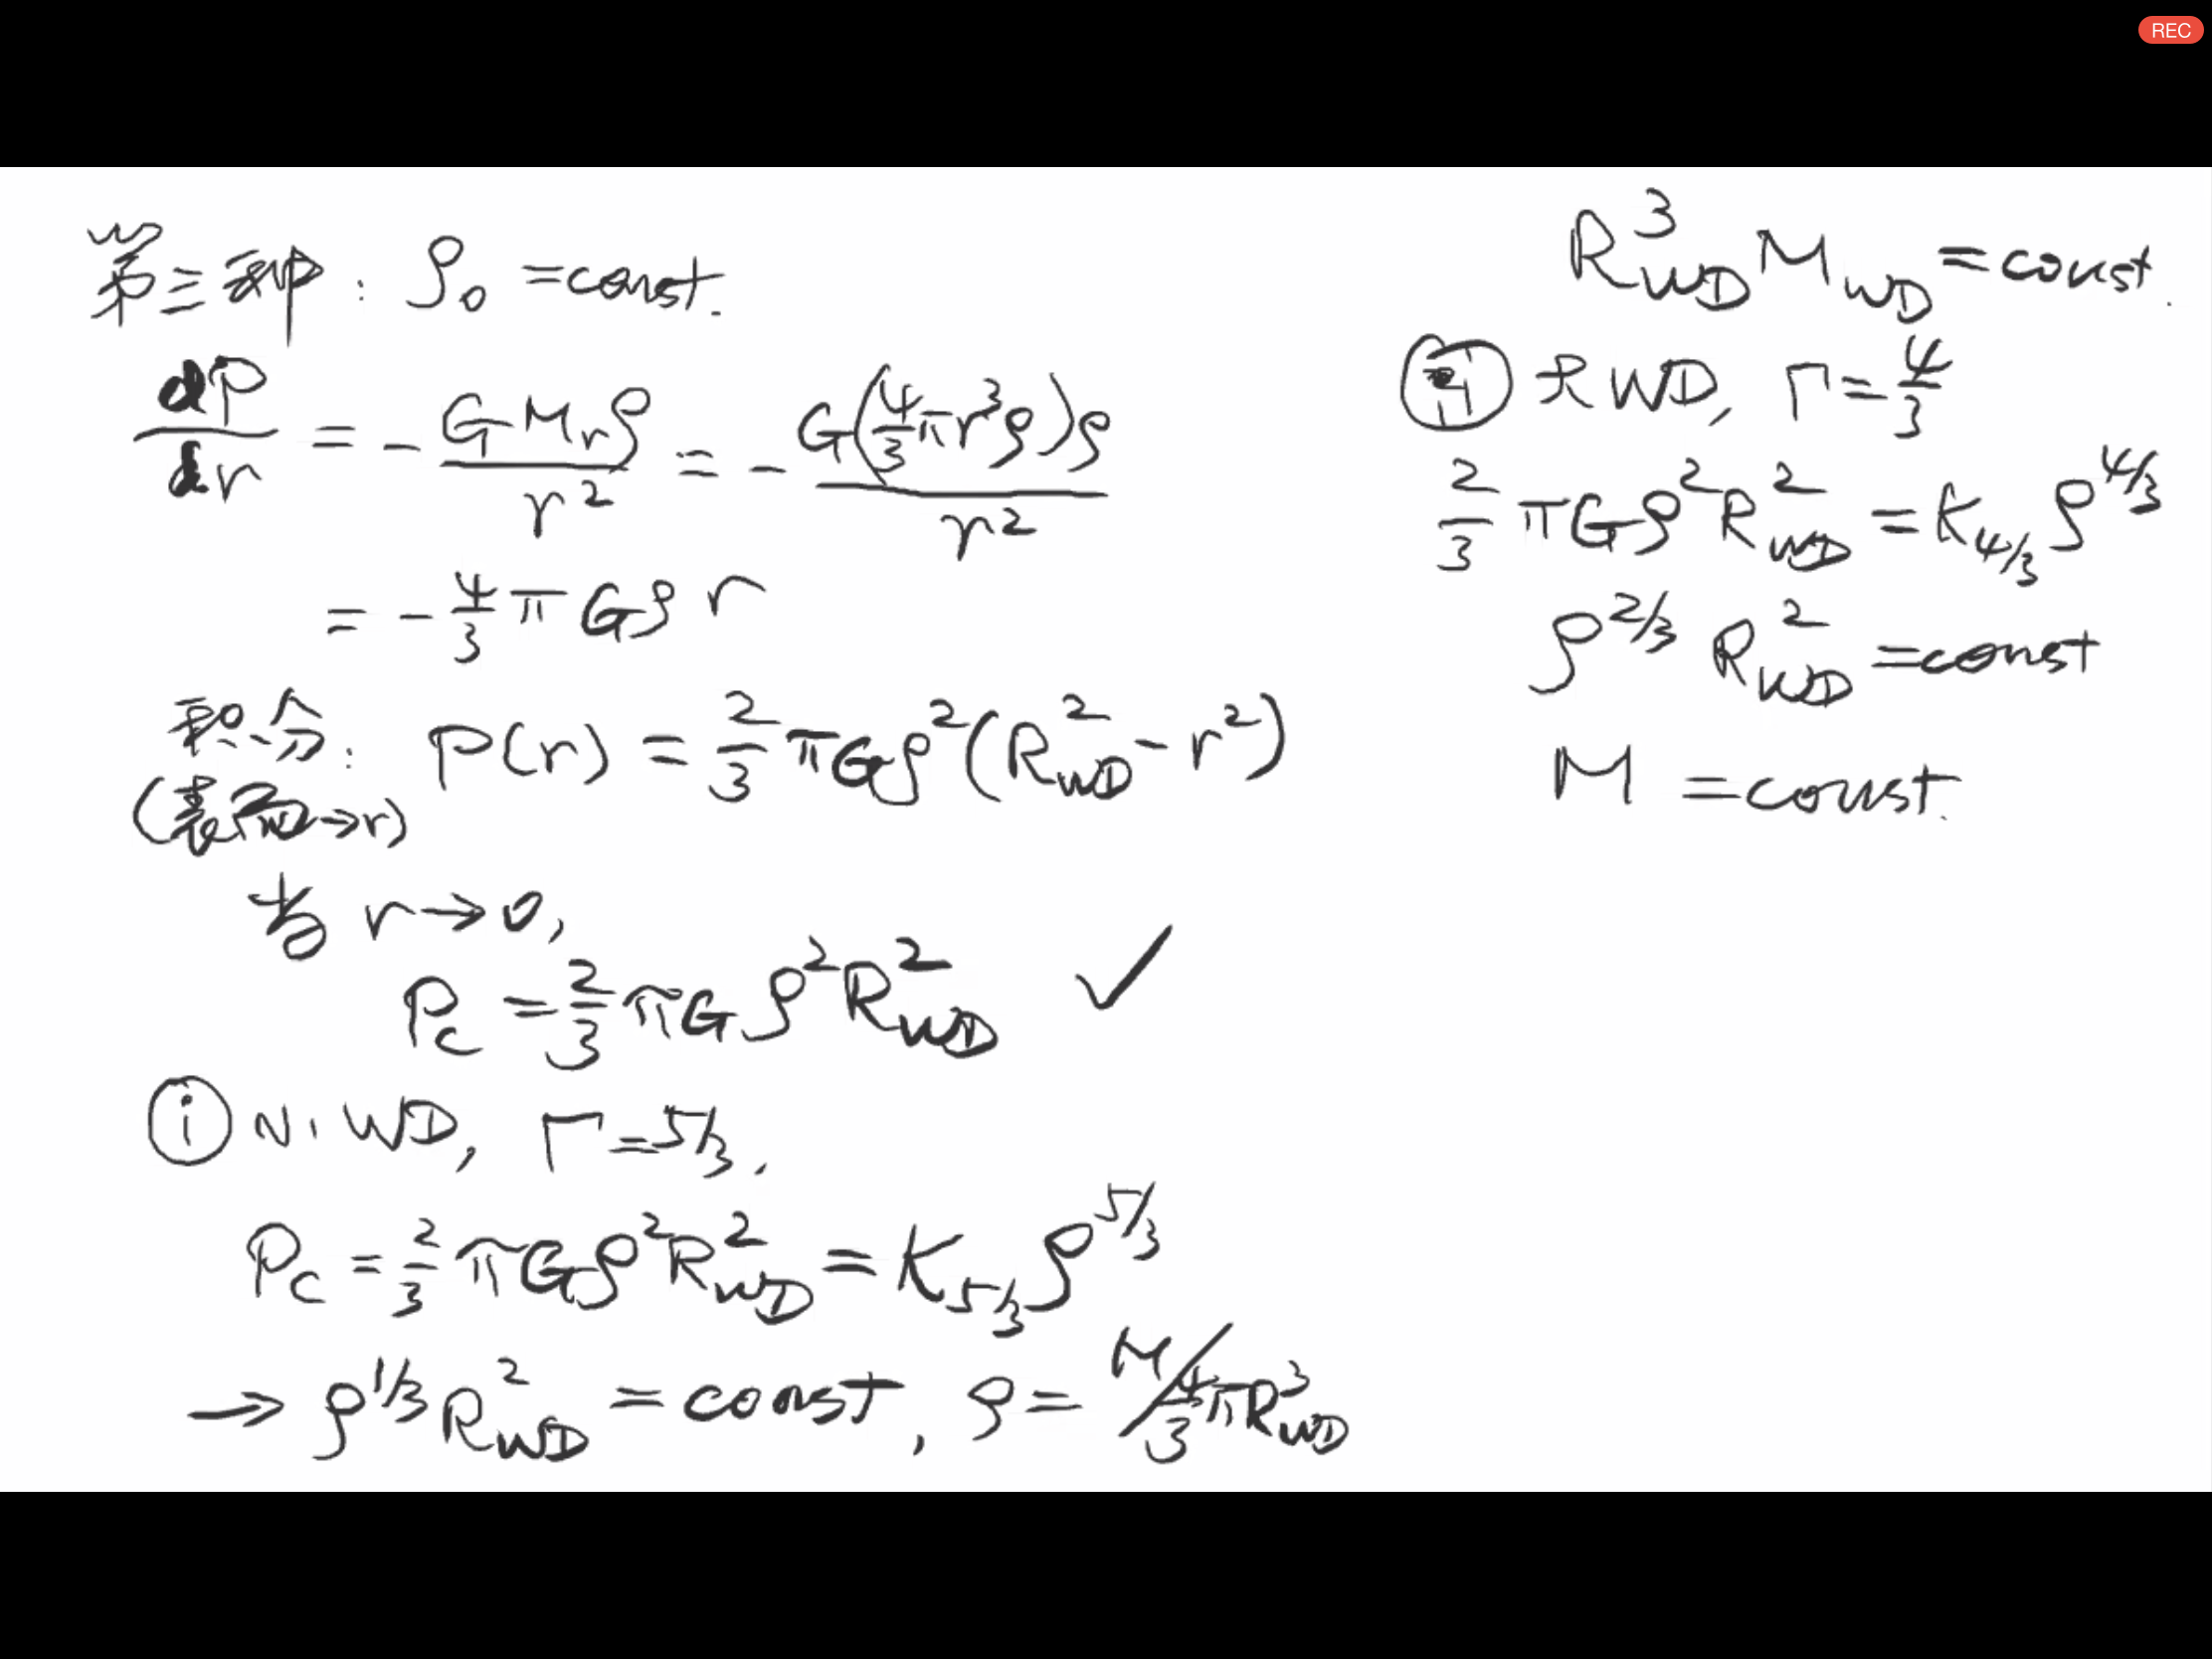 REC
第三种: ρ₀ = const.
dP/dr = - G Mᵣ ρ / r² = - G(4/3 π r³ ρ)ρ / r²
= - 4/3 π G ρ r
积分: P(r) = 2/3 π G ρ² (R_WD² - r²)
(表面 → r)
当 r → 0,
P_c = 2/3 π G ρ² R_WD² ✓
ⓘ N. WD, Γ = 5/3,
P_c = 2/3 π G ρ² R_WD² = K_5/3 ρ^5/3
→ ρ^1/3 R_WD² = const, ρ = M / 4/3 π R_WD³
R_WD³ M_WD = const.
ⓘⓘ R WD, Γ = 4/3
2/3 π G ρ² R_WD² = K_4/3 ρ^4/3
ρ^2/3 R_WD² = const
M = const.